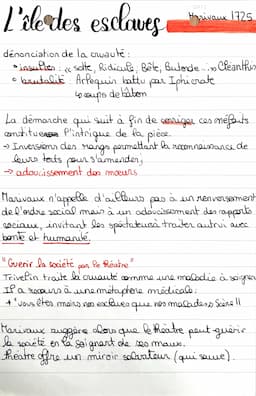 L'île des esclaves
Marivaux 1725
dénonciation de la cruauté :
• insultes : « sotte, Ridicule, Bête, Butorde... » Cléanthis
• brutalité : Arlequin battu par Iphicrate
coups de bâton
La démarche qui suit à fin de corriger ces méfaits
constitue l'intrigue de la pièce.
→ Inversions des rangs permettant la reconnaissance de
leurs torts pour s'amender,
→ adoucissement des mœurs
Marivaux n'appelle d'ailleurs pas à un renversement
de l'ordre social mais à un adoucissement des rapports
sociaux, invitant les spectateurs à traiter autrui avec
bonté et humanité.
"Guérir la société par le théâtre"
Trivelin traite la cruauté comme une maladie à soigner
Il a recours à une métaphore médicale :
"vous êtes moins nos esclaves que nos malades" Scène II
Marivaux suggère alors que le théâtre peut guérir
la société en la soignant de ses maux.
théâtre offre un miroir salvateur (qui sauve).